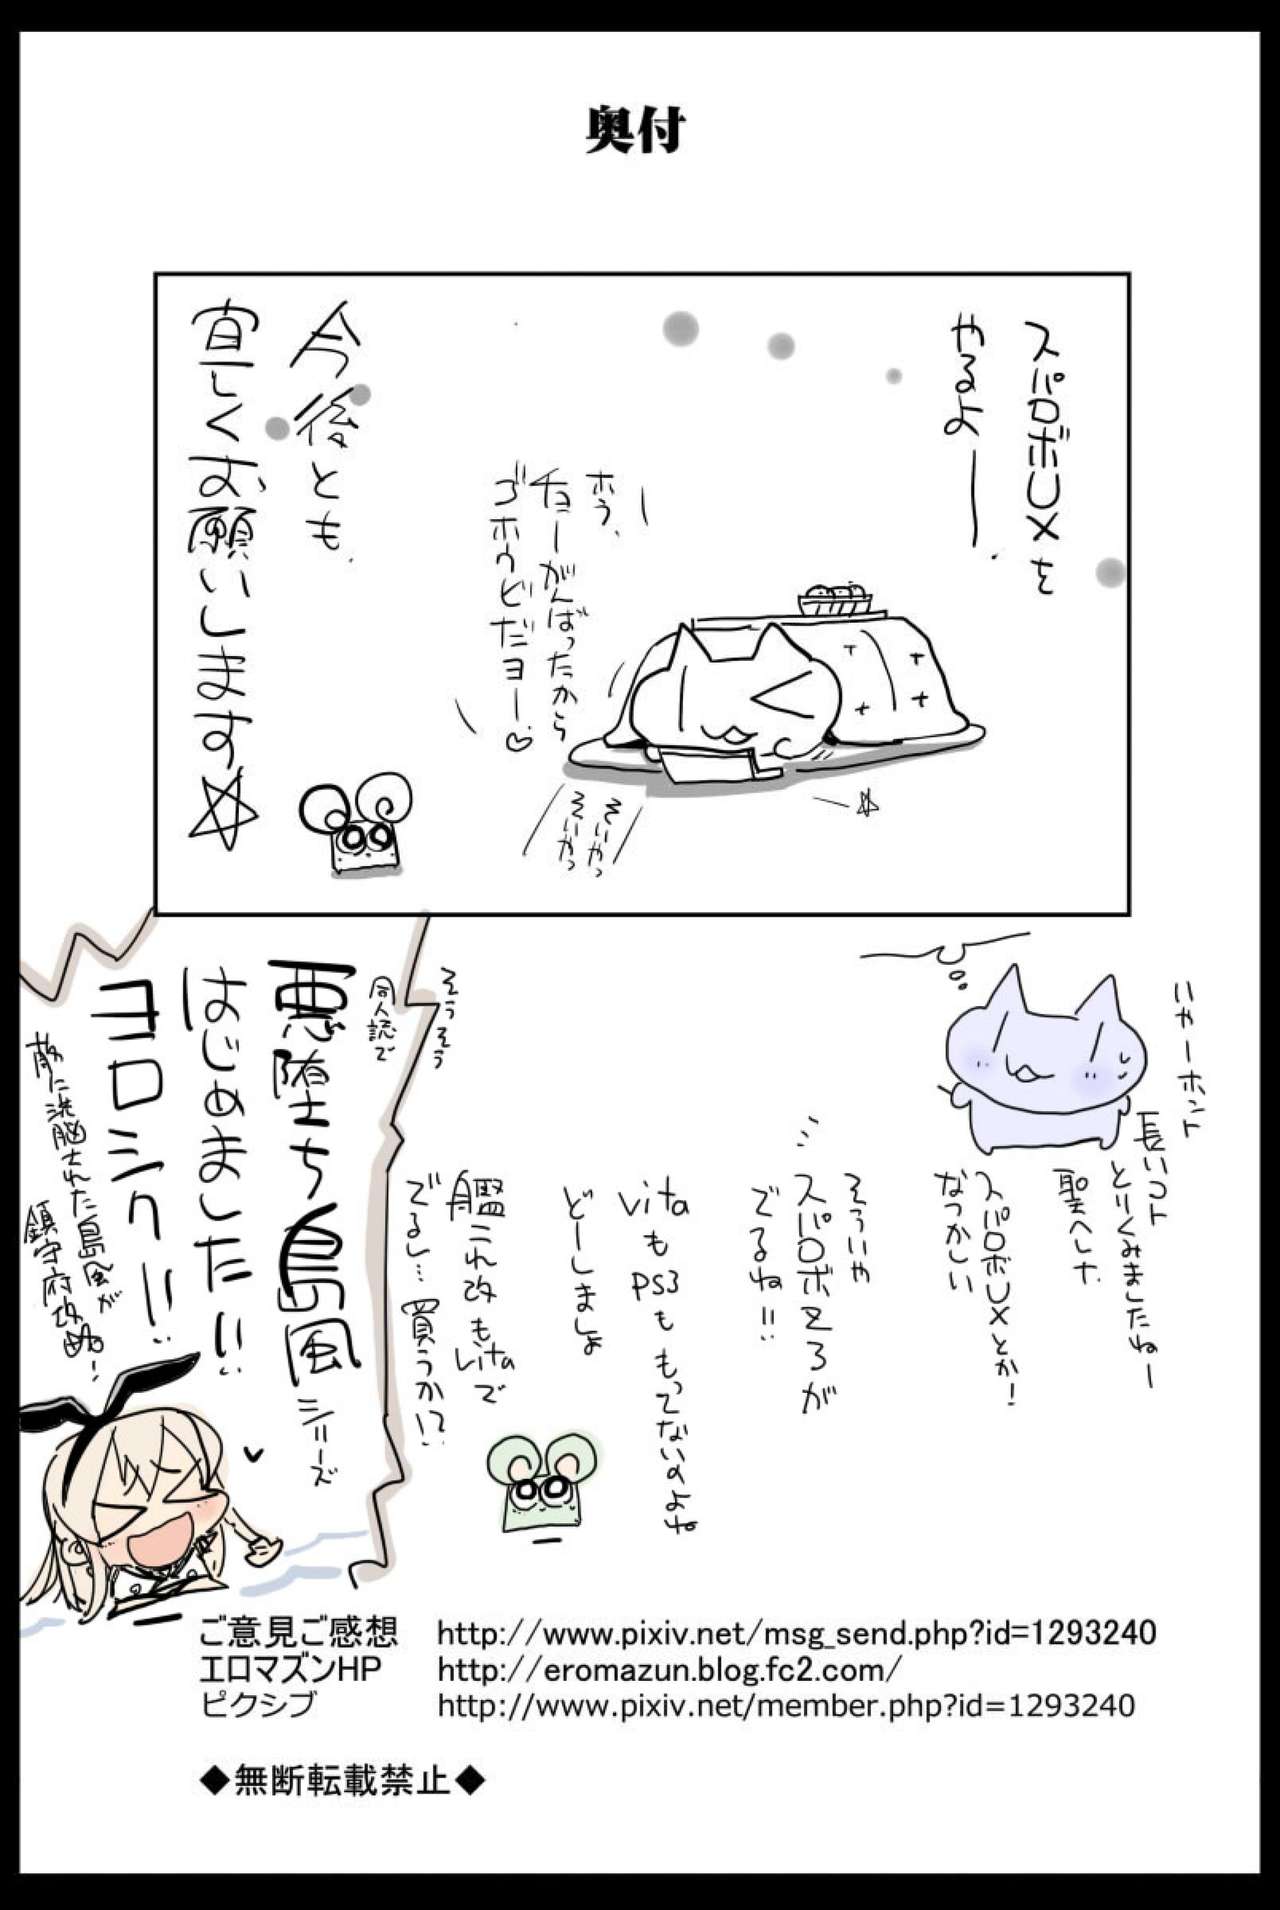 奥付
スパロボUXを
やるよー
ホラ、
チョーがんばったから
ゴホウビだヨー♡
そいやっ
そいやっ
今後とも
宜しくお願いします☆
いやーホント
長いコト
とりくみましたねー
聖へレナ
スパロボUXとか!
なつかしい
そういや
スパロボZ3が
でるね!!
vitaも
PS3も もってないのよね
どーしましょ
艦これ改もvitaで
でるし… 買うか!?
そうそう
同人誌で
悪堕ち島風シリーズ
はじめました!!
ヨロシク!!
に洗脳された島風が
鎮守府攻め!
ご意見ご感想 http://www.pixiv.net/msg_send.php?id=1293240
エロマズンHP http://eromazun.blog.fc2.com/
ピクシブ http://www.pixiv.net/member.php?id=1293240
◆無断転載禁止◆